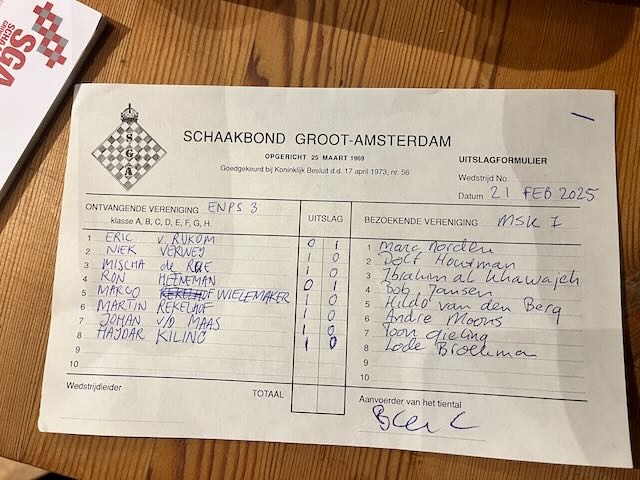 SGA
SCHAA
GROO
SGA
SCHAAKBOND GROOT-AMSTERDAM
OPGERICHT 25 MAART 1969
Goedgekeurd bij Koninklijk Besluit d.d. 17 april 1973, nr. 56
UITSLAGFORMULIER
Wedstrijd No.
Datum 21 FEB 2025
ONTVANGENDE VERENIGING ENPS 3
klasse A, B, C, D, E, F, G, H.
UITSLAG
BEZOEKENDE VERENIGING MSK 1
1 ERIC v RIJKOM 0 1 1 Marc Norden
2 NIEK VERWEY 1 0 2 Dolf Houtman
3 MISCHA de ROE 1 0 3 Ibrahim al Khawajeh
4 RON HEINEMAN 0 1 4 Bob Jansen
5 MARCO WIELEMAKER 1 0 5 Hildo van den Berg
6 MARTIN REKELHOF 1 0 6 Andre Moons
7 JOHAN v/d MAAS 1 0 7 Toon Gieling
8 HAYDAR KILINC 1 0 8 Lode Broekman
9 9
10 10
Wedstrijdleider
TOTAAL
Aanvoerder van het tiental